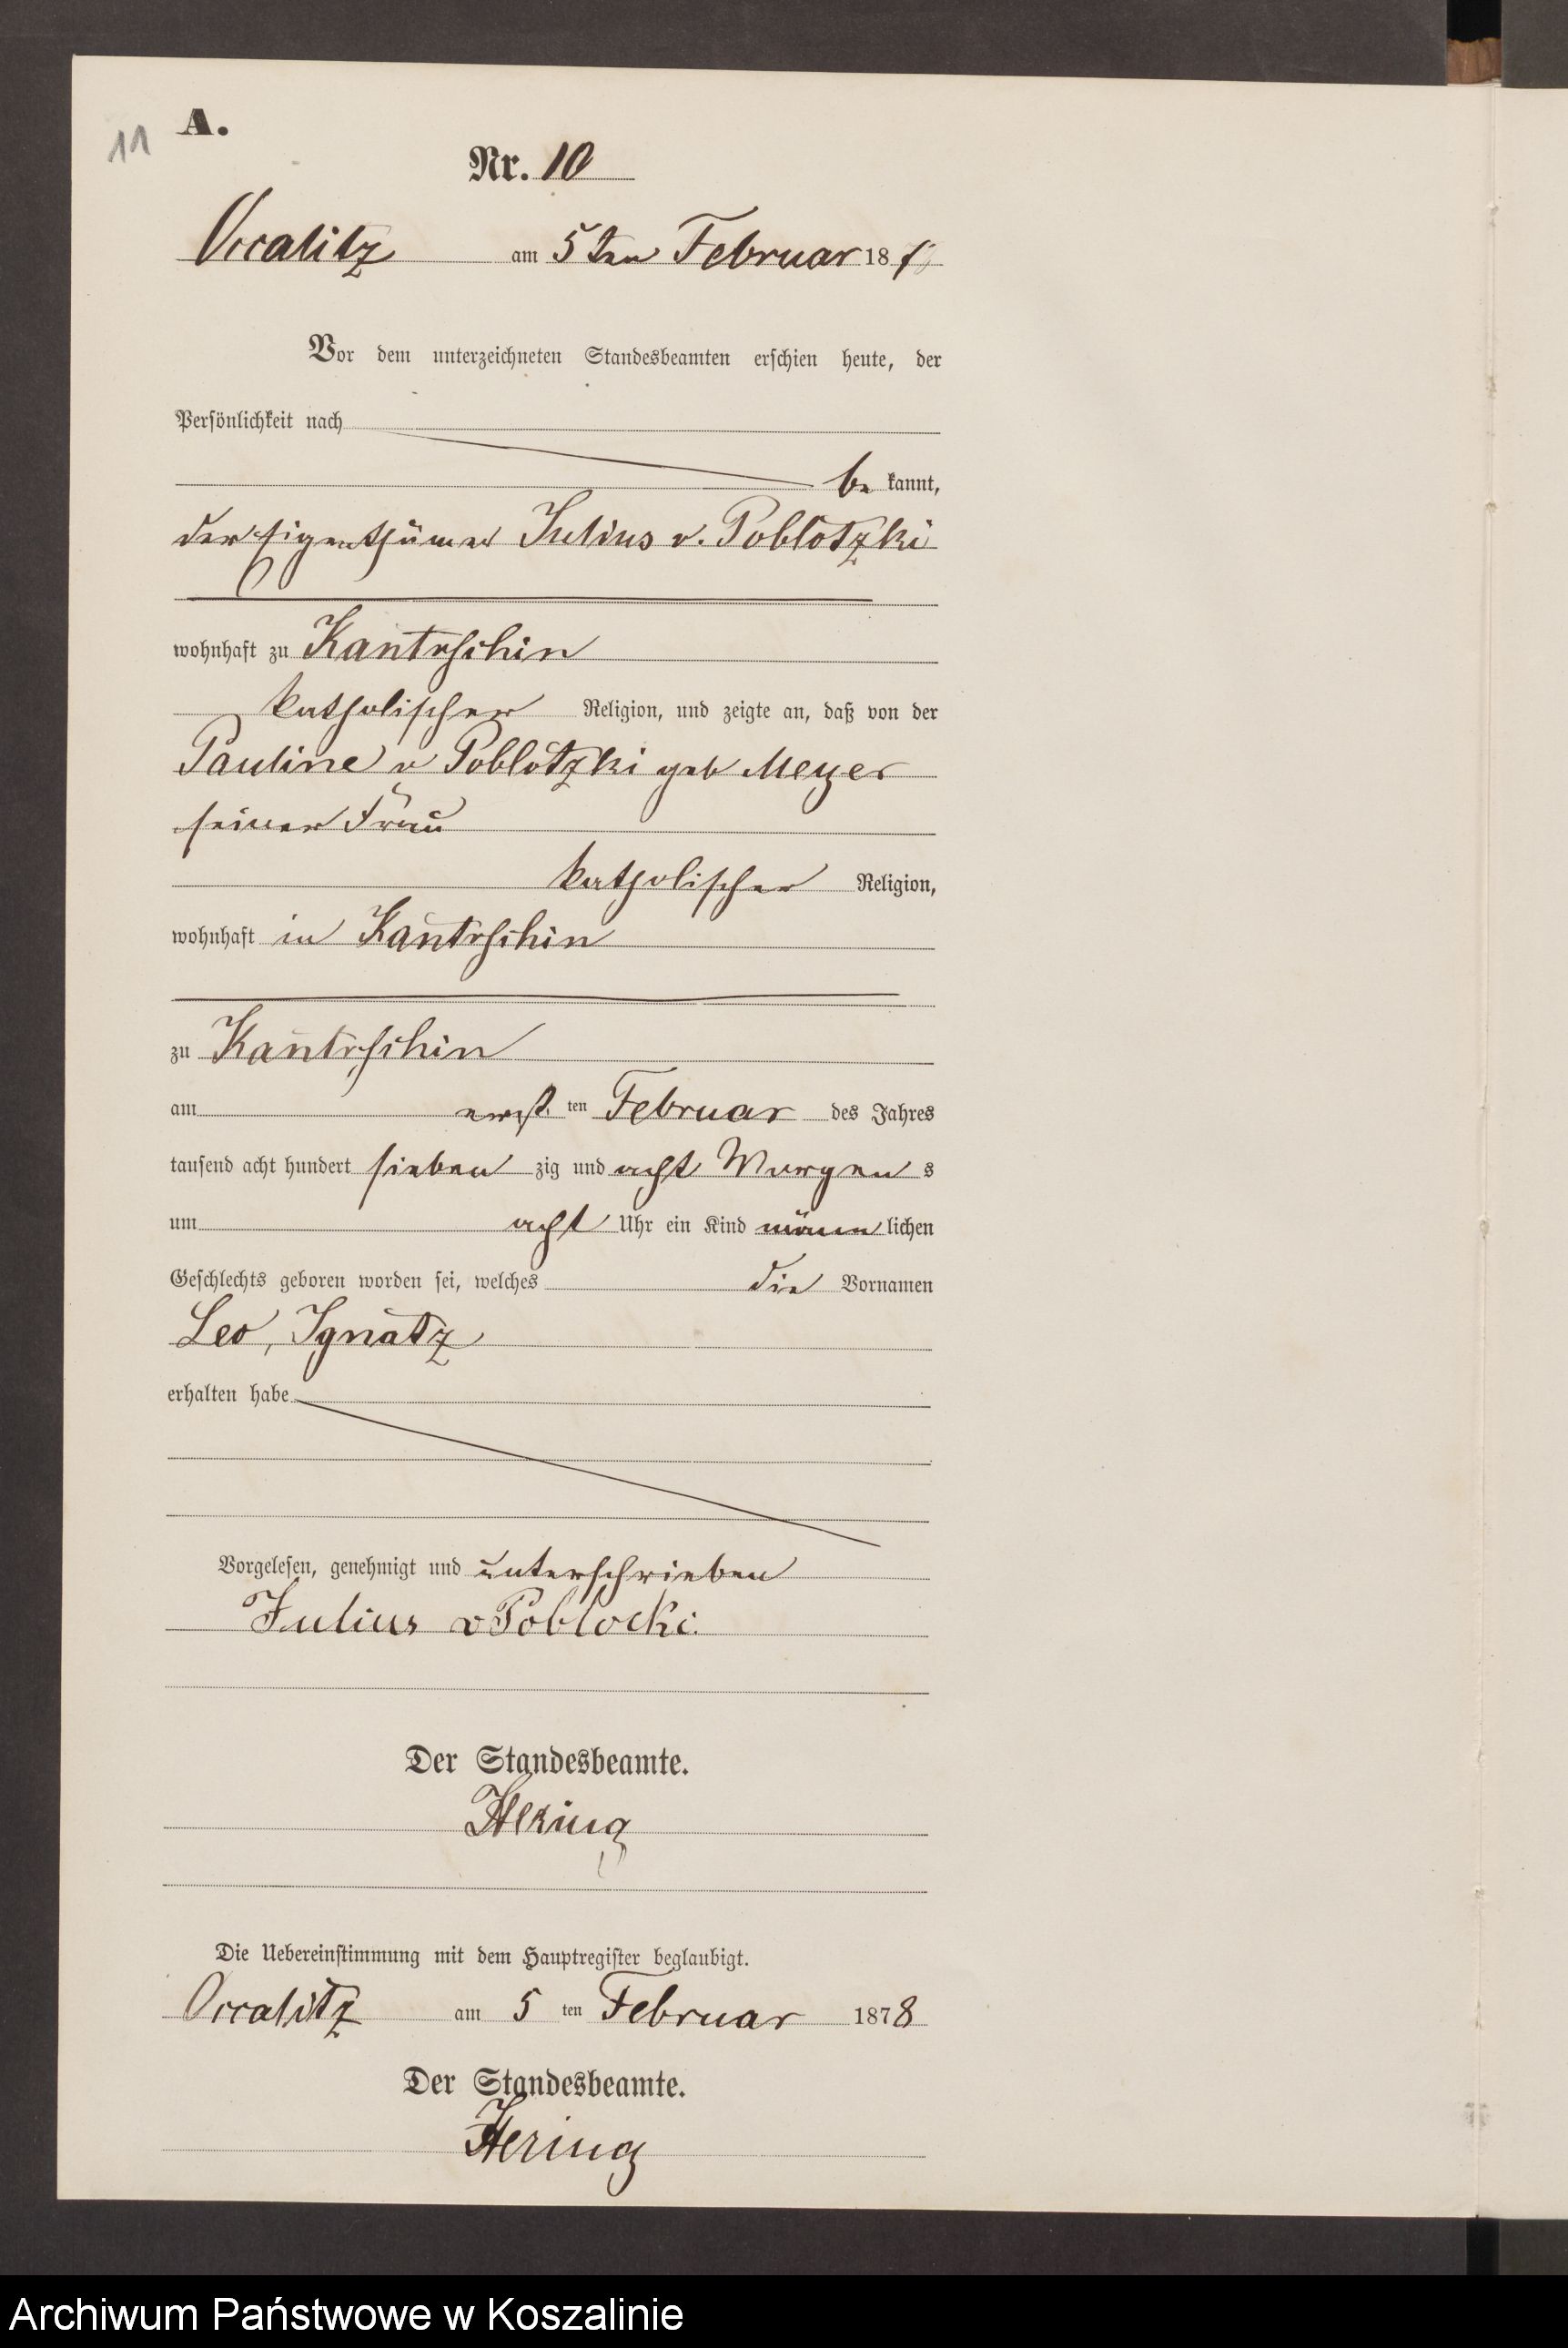 11
A.
Nr. 10
Occalitz am 5ten Februar 18
Vor dem unterzeichneten Standesbeamten erschien heute, der
Persönlichkeit nach
be kannt,
der Eigenthümer Julius v. Poblotzki
wohnhaft zu Kantrschin
katholischer Religion, und zeigte an, daß von der
Pauline v Poblotzki geb Meyer
seiner Frau
katholischer Religion,
wohnhaft in Kantrschin
zu Kantrschin
am erst ten Februar des Jahres
tausend acht hundert sieben zig und acht Morgen s
um acht Uhr ein Kind männ lichen
Geschlechts geboren worden sei, welches die Vornamen
Leo, Ignatz
erhalten habe
Vorgelesen, genehmigt und unterschrieben
Julius v Poblocki.
Der Standesbeamte.
Hering
Die Uebereinstimmung mit dem Hauptregister beglaubigt.
Occalitz am 5 ten Februar 1878
Der Standesbeamte.
Hering
Archiwum Państwowe w Koszalinie